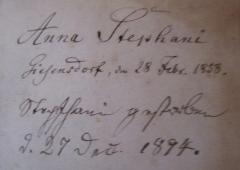 Anna Stephani
Giesensdorf, den 28 Febr. 1858.
Stephani gestorben
d. 27 Dec. 1894.